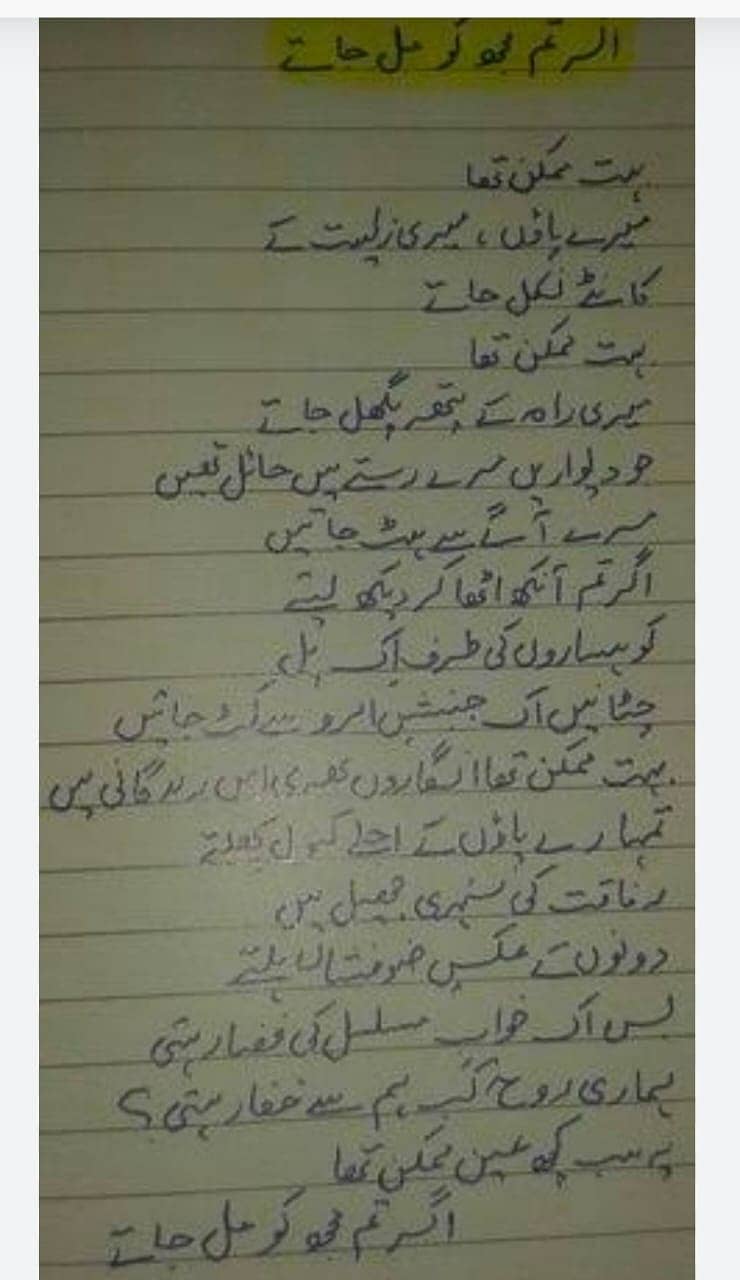 اگر تم مجھ کو مل جاتے
بہت ممکن تھا
میرے پاؤں ، میری زیست کے
کانٹے نکل جاتے
بہت ممکن تھا
میری راہ کے پتھر پگھل جاتے
جو دیواریں مرے رستے میں حائل تھیں
مرے آگے سے ہٹ جاتیں
اگر تم آنکھ اٹھا کر دیکھ لیتے
کوہساروں کی طرف اک پل
چٹانیں اک جنبشِ ابرو سے کٹ جاتیں
بہت ممکن تھا انگاروں بھری اس زندگانی میں
تمہارے پاؤں کے اجلے کنول کھلتے
رفاقت کی سنہری جھیل میں
دونوں کے عکسِ ضوفشاں ہلتے
بس اک خوابِ مسلسل کی فضا رہتی
ہماری روح کب ہم سے خفا رہتی؟
یہ سب کچھ عین ممکن تھا
اگر تم مجھ کو مل جاتے